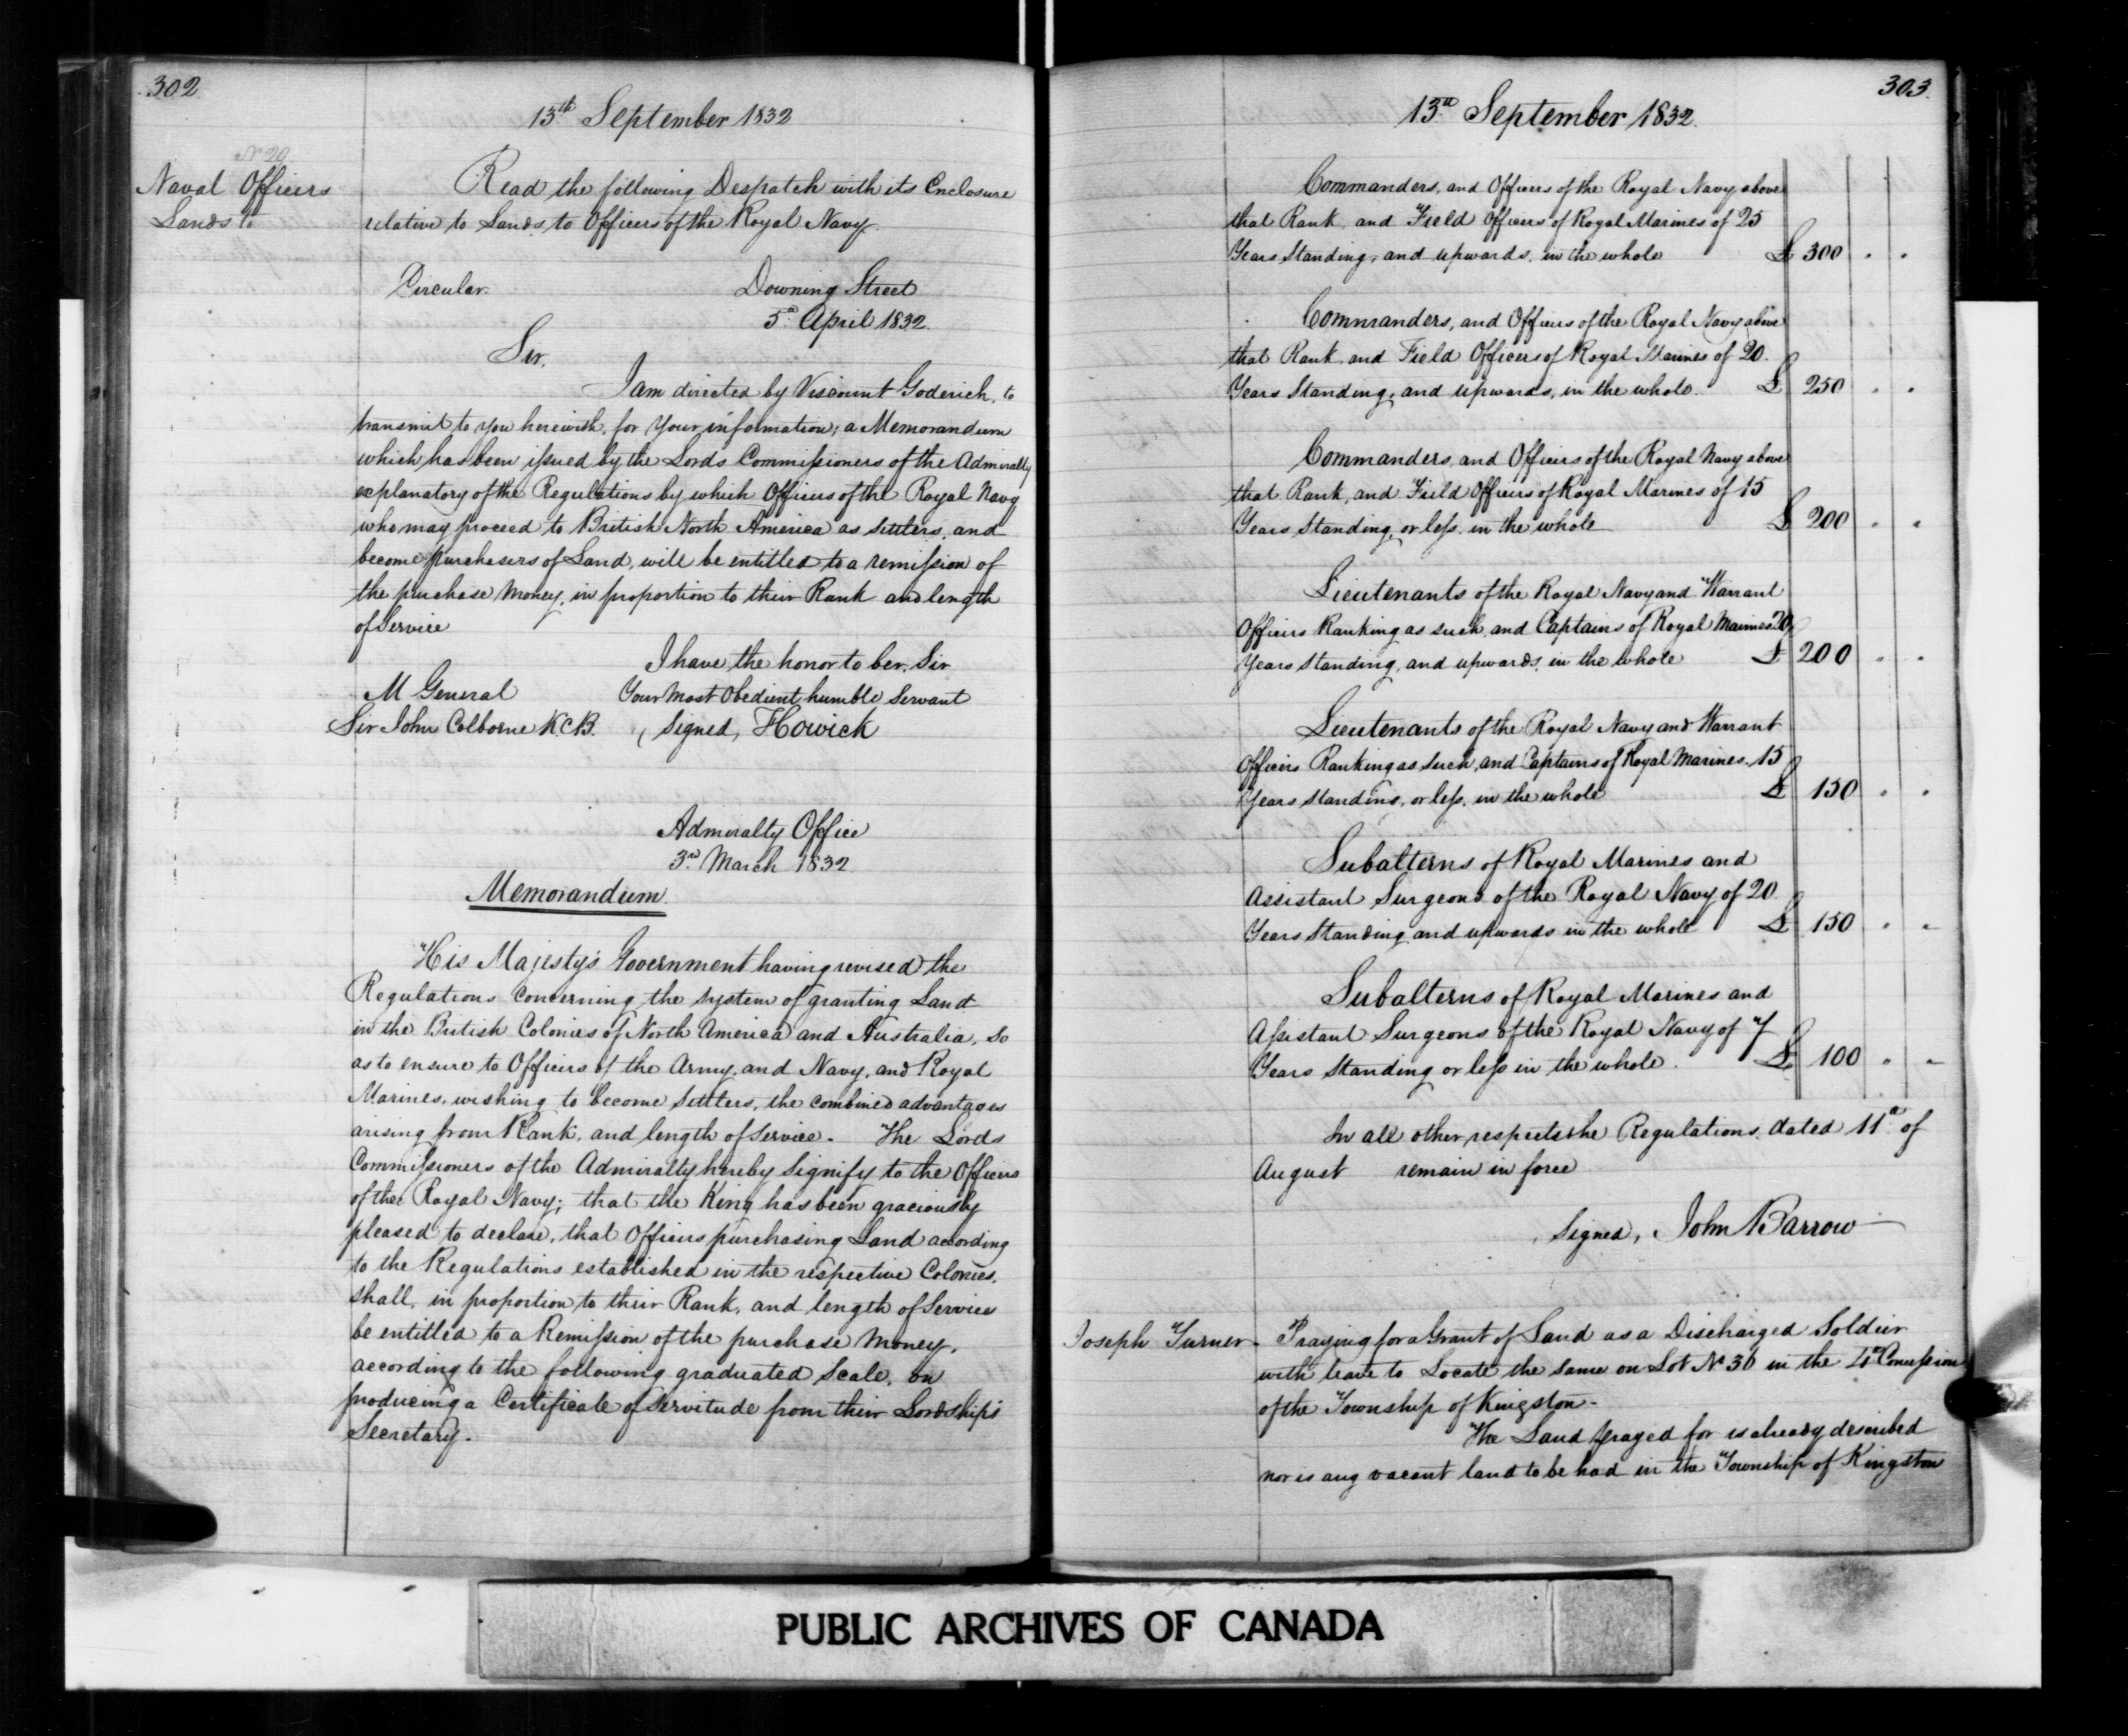 302
13th September 1832
No 29
Naval Officers
Lands to
Read the following Despatch with its Enclosure
relative to Lands to Officers of the Royal Navy.
Circular.
Downing Street
5th April 1832.
Sir,
I am directed by Viscount Goderich, to
transmit to you herewith, for your information; a Memorandum
which has been issued by the Lords Commissioners of the Admiralty
explanatory of the Regulations by which Officers of the Royal Navy
who may proceed to British North America as settlers, and
become purchasers of Land, will be entitled to a remission of
the purchase money, in proportion to their Rank and length
of Service
I have the honor to be, Sir
M General
Your most Obedient humble Servant
Sir John Colborne K.C.B.
(signed, Howick
Admiralty Office
3rd March 1832
Memorandum.
His Majesty's Government having revised the
Regulations concerning the system of granting Land
in the British Colonies of North America and Australia, so
as to ensure to Officers of the Army, and Navy, and Royal
Marines, wishing to become settlers, the combined advantages
arising from Rank, and length of service. The Lords
Commissioners of the Admiralty hereby signify to the Officers
of the Royal Navy; that the King has been graciously
pleased to declare, that Officers purchasing Land according
to the Regulations established in the respective Colonies,
shall, in proportion to their Rank, and length of Service
be entitled to a Remission of the purchase money,
according to the following graduated scale, on
producing a Certificate of Servitude from their Lordship's
Secretary.
303.
13th September 1832.
Commanders, and Officers of the Royal Navy above
that Rank, and Field Officers of Royal Marines of 25
Years Standing, and upwards, in the whole £ 300 . .
Commanders, and Officers of the Royal Navy above
that Rank and Field Officers of Royal Marines of 20.
Years Standing, and upwards, in the whole. £ 250 . .
Commanders, and Officers of the Royal Navy above
that Rank, and Field Officers of Royal Marines of 15
Years Standing, or less, in the whole £ 200 . .
Lieutenants of the Royal Navy and Warrant
Officers Ranking as such, and Captains of Royal Marines 20,
Years standing, and upwards, in the whole £ 200 . .
Lieutenants of the Royal Navy and Warrant
Officers Ranking as such, and Captains of Royal Marines. 15
Years standing, or less, in the whole £ 150 . .
Subalterns of Royal Marines and
Assistant Surgeons of the Royal Navy of 20
Years Standing and upwards in the whole £ 150 . .
Subalterns of Royal Marines and
Assistant Surgeons of the Royal Navy of 7
Years Standing or less in the whole. £ 100 . .
In all other respects the Regulations, dated 11th of
August remain in force
signed, John Barrow
Joseph Turner. Praying for a Grant of Land as a Discharged Soldier
with leave to Locate the same on Lot No 36 in the 4th Concession
of the Township of Kingston.
The Land prayed for is already described
nor is any vacant land to be had in the Township of Kingston
PUBLIC ARCHIVES OF CANADA